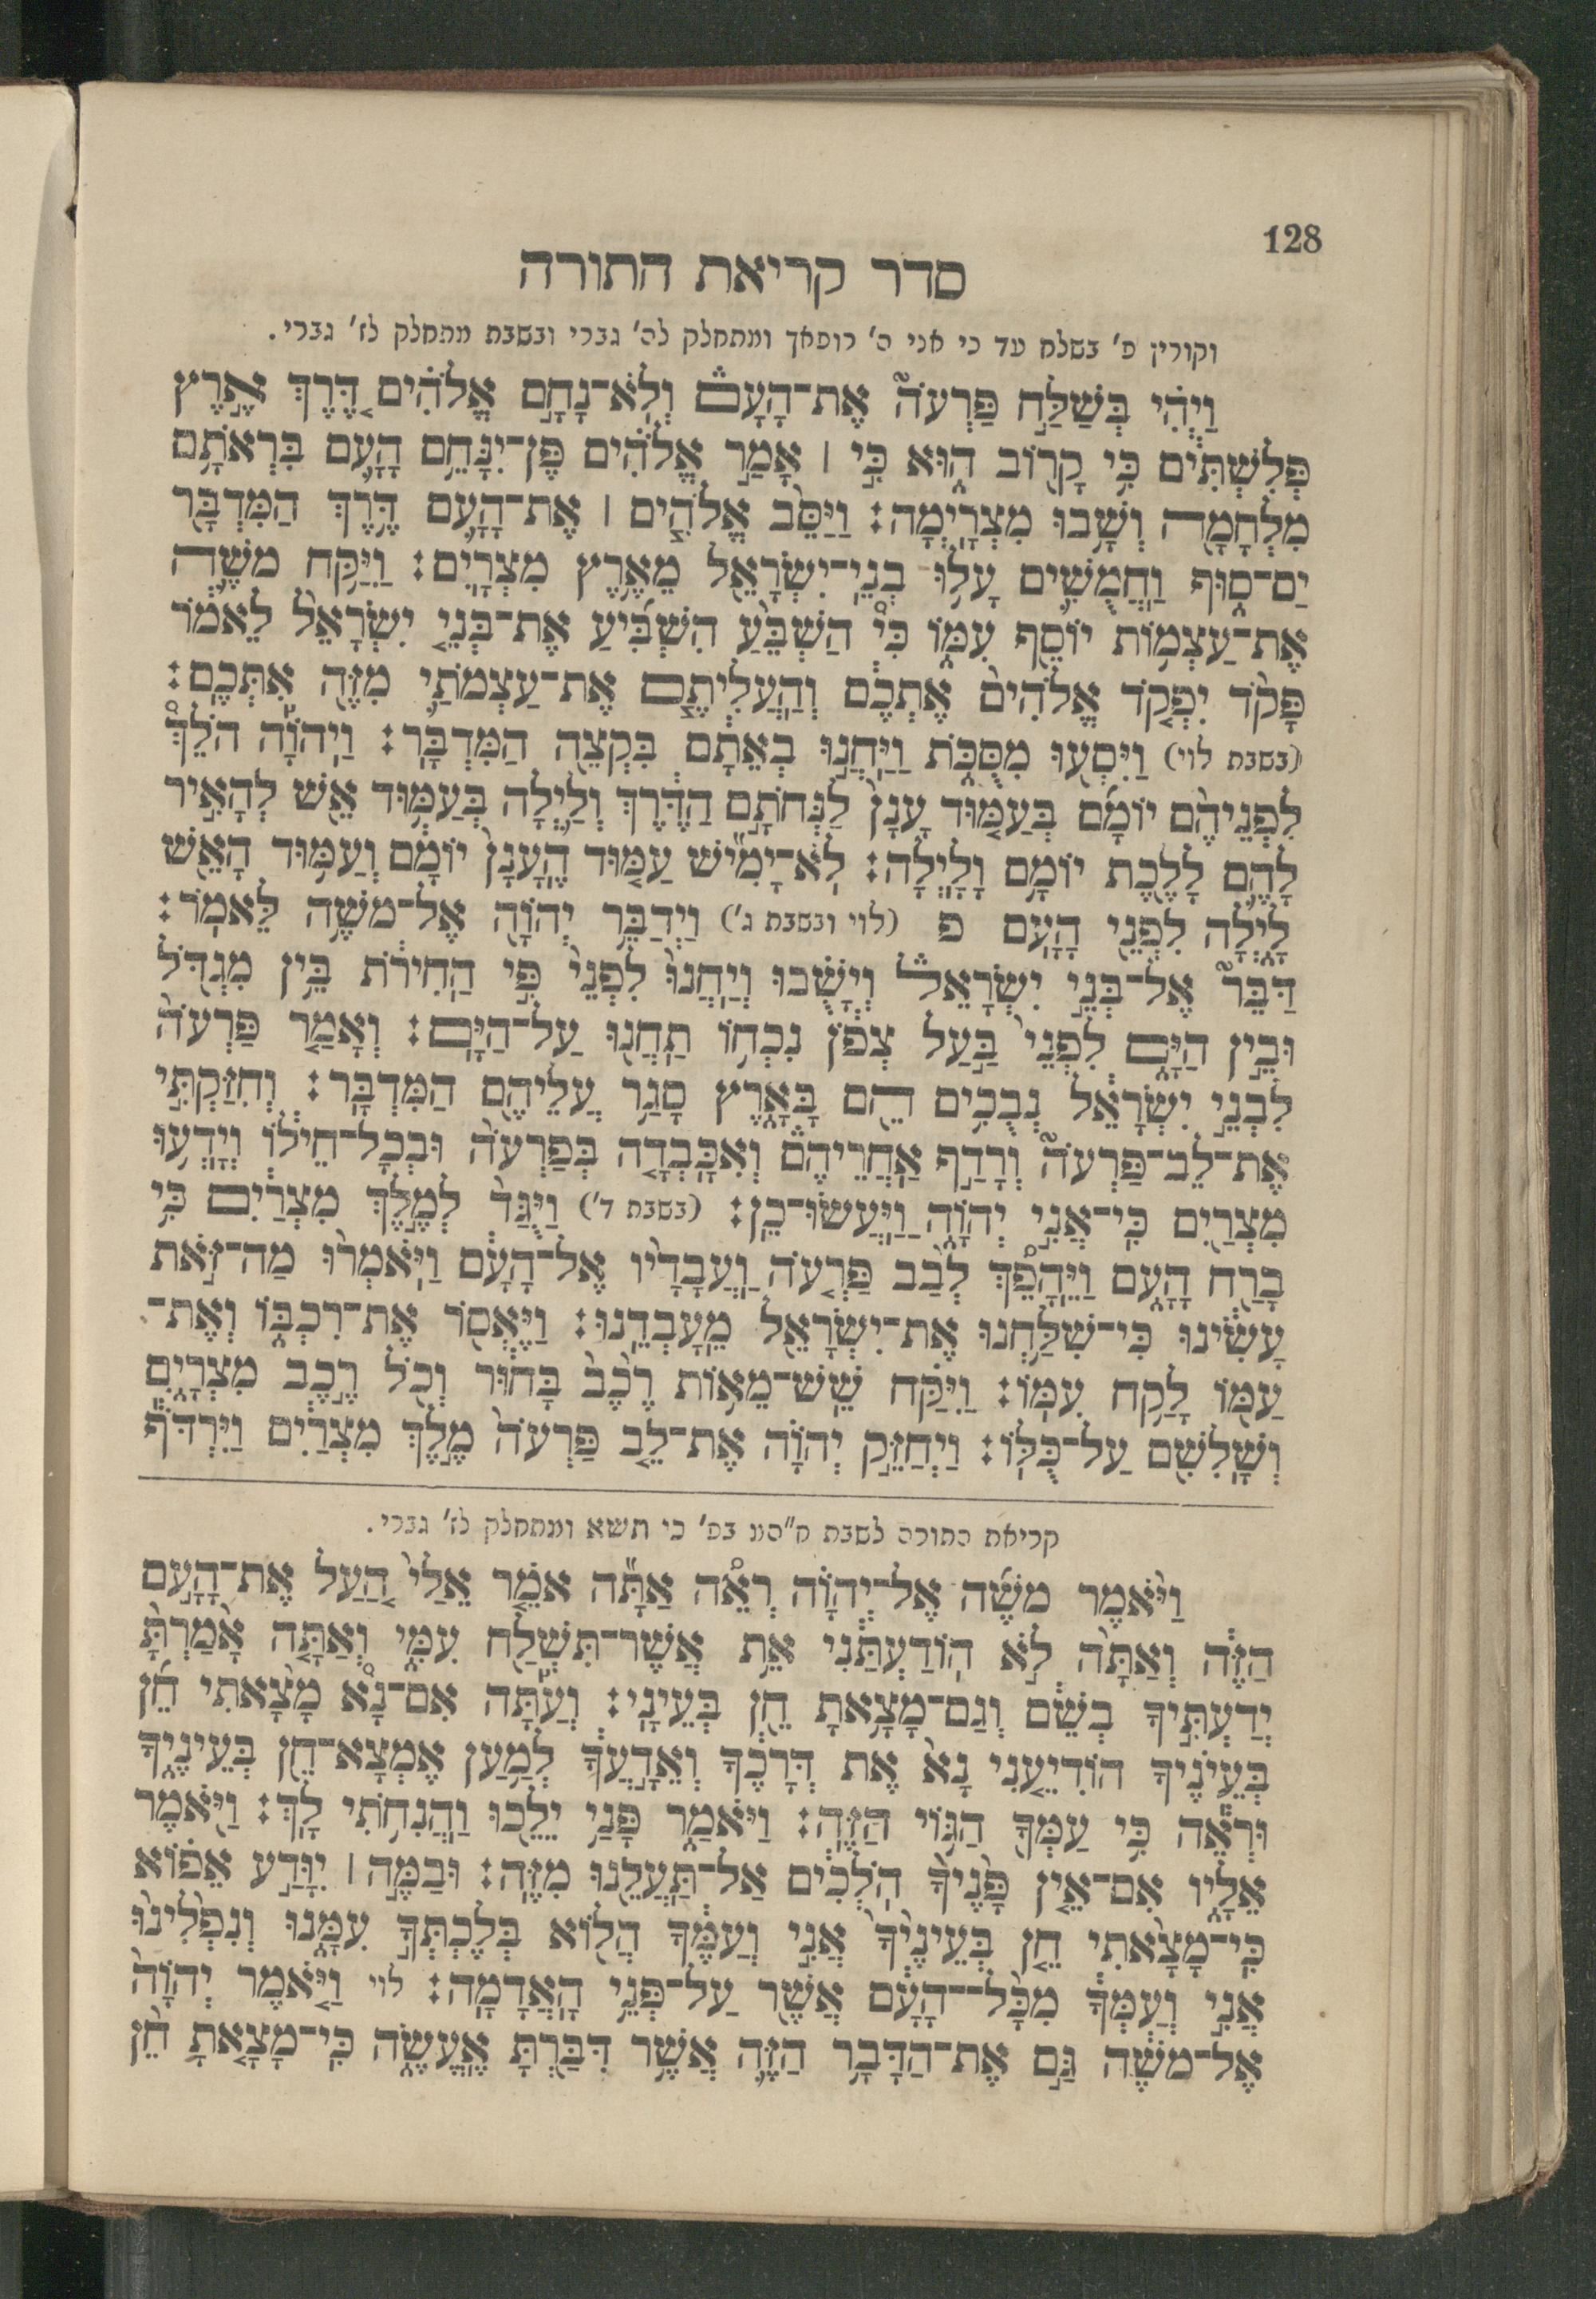 128
סדר קריאת התורה
וקורין פ׳ בשלח עד כי אני ה׳ רופאך ומתחלק לה׳ גברי ובשבת מתחלק לז׳ גברי.
וַיְהִ֗י בְּשַׁלַּ֣ח פַּרְעֹה֮ אֶת־הָעָם֒ וְלֹא־נָחָ֣ם אֱלֹהִ֗ים דֶּ֚רֶךְ אֶ֣רֶץ
פְּלִשְׁתִּ֔ים כִּ֥י קָר֖וֹב ה֑וּא כִּ֣י ׀ אָמַ֣ר אֱלֹהִ֗ים פֶּן־יִנָּחֵ֥ם הָעָ֛ם בִּרְאֹתָ֥ם
מִלְחָמָ֖ה וְשָׁ֥בוּ מִצְרָֽיְמָה׃ וַיַּסֵּ֨ב אֱלֹהִ֧ים ׀ אֶת־הָעָ֛ם דֶּ֥רֶךְ הַמִּדְבָּ֖ר
יַם־ס֑וּף וַחֲמֻשִׁ֛ים עָל֥וּ בְנֵֽי־יִשְׂרָאֵ֖ל מֵאֶ֥רֶץ מִצְרָֽיִם׃ וַיִּקַּ֥ח מֹשֶׁ֛ה
אֶת־עַצְמ֥וֹת יוֹסֵ֖ף עִמּ֑וֹ כִּי֩ הַשְׁבֵּ֨עַ הִשְׁבִּ֜יעַ אֶת־בְּנֵ֤י יִשְׂרָאֵל֙ לֵאמֹ֔ר
פָּקֹ֨ד יִפְקֹ֤ד אֱלֹהִים֙ אֶתְכֶ֔ם וְהַֽעֲלִיתֶ֧ם אֶת־עַצְמֹתַ֛י מִזֶּ֖ה אִתְּכֶֽם׃
(בשבת לוי) וַיִּסְע֖וּ מִסֻּכֹּ֑ת וַיַּֽחֲנ֣וּ בְאֵתָ֔ם בִּקְצֵ֖ה הַמִּדְבָּֽר׃ וַֽיהוָ֡ה הֹלֵךְ֩
לִפְנֵיהֶ֨ם יוֹמָ֜ם בְּעַמּ֤וּד עָנָן֙ לַנְחֹתָ֣ם הַדֶּ֔רֶךְ וְלַ֛יְלָה בְּעַמּ֥וּד אֵ֖שׁ לְהָאִ֣יר
לָהֶ֑ם לָלֶ֖כֶת יוֹמָ֥ם וָלָֽיְלָה׃ לֹֽא־יָמִ֞ישׁ עַמּ֤וּד הֶֽעָנָן֙ יוֹמָ֔ם וְעַמּ֥וּד הָאֵ֖שׁ
לָ֑יְלָה לִפְנֵ֖י הָעָֽם פ (לוי ובשבת ג׳) וַיְדַבֵּ֥ר יְהוָ֖ה אֶל־מֹשֶׁ֥ה לֵּאמֹֽר׃
דַּבֵּר֮ אֶל־בְּנֵ֣י יִשְׂרָאֵל֒ וְיָשֻׁ֗בוּ וְיַֽחֲנוּ֙ לִפְנֵי֙ פִּ֣י הַֽחִירֹ֔ת בֵּ֥ין מִגְדֹּ֖ל
וּבֵ֣ין הַיָּ֑ם לִפְנֵי֙ בַּ֣עַל צְפֹ֔ן נִכְח֥וֹ תַֽחֲנ֖וּ עַל־הַיָּֽם׃ וְאָמַ֤ר פַּרְעֹה֙
לִבְנֵ֣י יִשְׂרָאֵ֔ל נְבֻכִ֥ים הֵ֖ם בָּאָ֑רֶץ סָגַ֥ר עֲלֵיהֶ֖ם הַמִּדְבָּֽר׃ וְחִזַּקְתִּ֣י
אֶת־לֵב־פַּרְעֹה֮ וְרָדַ֣ף אַחֲרֵיהֶם֒ וְאִכָּֽבְדָ֤ה בְּפַרְעֹה֙ וּבְכָל־חֵיל֔וֹ וְיָֽדְע֥וּ
מִצְרַ֖יִם כִּֽי־אֲנִ֣י יְהוָ֑ה וַיַּעֲשׂוּ־כֵֽן׃ (בשבת ד׳) וַיֻּגַּד֙ לְמֶ֣לֶךְ מִצְרַ֔יִם כִּ֥י
בָרַ֖ח הָעָ֑ם וַ֠יֵּהָפֵךְ לְבַ֨ב פַּרְעֹ֤ה וַֽעֲבָדָיו֙ אֶל־הָעָ֔ם וַיֹּֽאמְרוּ֙ מַה־זֹּ֣את
עָשִׂ֔ינוּ כִּֽי־שִׁלַּ֥חְנוּ אֶת־יִשְׂרָאֵ֖ל מֵֽעָבְדֵֽנוּ׃ וַיֶּאְסֹ֖ר אֶת־רִכְבּ֑וֹ וְאֶת־
עַמּ֖וֹ לָקַ֥ח עִמּֽוֹ׃ וַיִּקַּ֗ח שֵׁשׁ־מֵא֥וֹת רֶ֙כֶב֙ בָּח֔וּר וְכֹ֖ל רֶ֣כֶב מִצְרָ֑יִם
וְשָֽׁלִשִׁ֖ם עַל־כֻּלּֽוֹ׃ וַיְחַזֵּ֣ק יְהוָ֗ה אֶת־לֵ֤ב פַּרְעֹה֙ מֶ֣לֶךְ מִצְרַ֔יִם וַיִּרְדֹּ֕ף
קריאת התורה לשבת ח״המ בפ׳ כי תשא ומתחלק לז׳ גברי.
וַיֹּ֨אמֶר מֹשֶׁ֜ה אֶל־יְהוָ֗ה רְ֠אֵה אַתָּ֞ה אֹמֵ֤ר אֵלַי֙ הַ֚עַל אֶת־הָעָ֣ם
הַזֶּ֔ה וְאַתָּה֙ לֹ֣א הֽוֹדַעְתַּ֔נִי אֵ֥ת אֲשֶׁר־תִּשְׁלַ֖ח עִמִּ֑י וְאַתָּ֤ה אָמַ֙רְתָּ֙
יְדַעְתִּ֣יךָ בְשֵׁ֔ם וְגַם־מָצָ֥אתָ חֵ֖ן בְּעֵינָֽי׃ וְעַתָּ֡ה אִם־נָא֩ מָצָ֨אתִי חֵ֜ן
בְּעֵינֶ֗יךָ הוֹדִיעֵ֤נִי נָא֙ אֶת דְּרָכֶ֔ךָ וְאֵדָ֣עֲךָ֔ לְמַ֥עַן אֶמְצָא־חֵ֖ן בְּעֵינֶ֑יךָ
וּרְאֵ֕ה כִּ֥י עַמְּךָ֖ הַגּ֥וֹי הַזֶּֽה׃ וַיֹּאמַ֑ר פָּנַ֥י יֵלֵ֖כוּ וַהֲנִחֹ֥תִי לָֽךְ׃ וַיֹּ֖אמֶר
אֵלָ֑יו אִם־אֵ֤ין פָּנֶ֙יךָ֙ הֹלְכִ֔ים אַֽל־תַּעֲלֵ֖נוּ מִזֶּֽה׃ וּבַמֶּ֣ה ׀ יִוָּדַ֣ע אֵפ֗וֹא
כִּֽי־מָצָ֨אתִי חֵ֤ן בְּעֵינֶ֙יךָ֙ אֲנִ֣י וְעַמֶּ֔ךָ הֲל֖וֹא בְּלֶכְתְּךָ֣ עִמָּ֑נוּ וְנִפְלִ֙ינוּ֙
אֲנִ֣י וְעַמְּךָ֔ מִכָּ֨ל־הָעָ֔ם אֲשֶׁ֖ר עַל־פְּנֵ֥י הָאֲדָמָֽה׃ לוי וַיֹּ֤אמֶר יְהוָה֙
אֶל־מֹשֶׁ֔ה גַּ֣ם אֶת־הַדָּבָ֥ר הַזֶּ֛ה אֲשֶׁ֥ר דִּבַּ֖רְתָּ אֶֽעֱשֶׂ֑ה כִּֽי־מָצָ֤אתָ חֵן֙